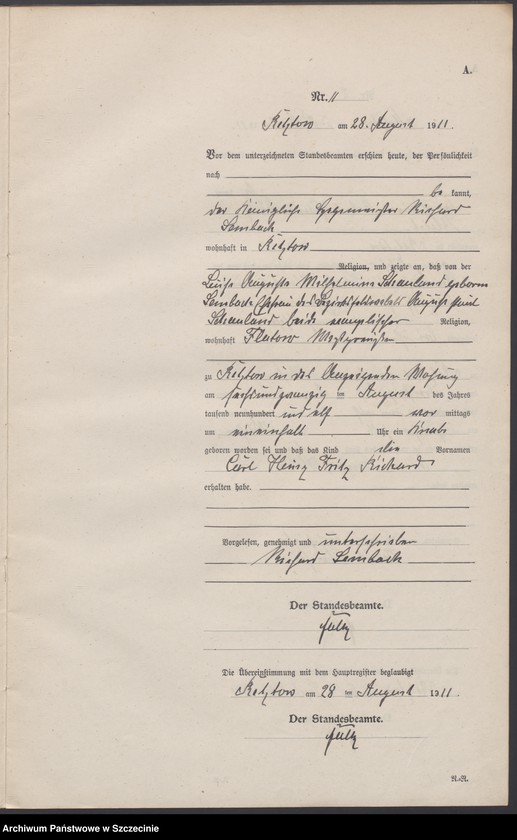 A.
Nr. 11
am 28. August 1911.
Vor dem unterzeichneten Standesbeamten erschien heute, der Persönlichkeit
nach
be kannt,
der Königliche Hegemeister Richard
Sembach
wohnhaft in
Religion, und zeigte an, daß von der
Luise Auguste Wilhelmine geborne
Sembach Ehefrau des August Paul
beide evangelischer Religion,
wohnhaft Flatow Westpreußen
zu in des Anzeigenden Wohnung
am sechsundzwanzig ten August des Jahres
tausend neunhundert und elf vor mittags
um eineinhalb Uhr ein Knabe
geboren worden sei und daß das Kind die Vornamen
Carl Heinz Fritz Richard
erhalten habe.
Vorgelesen, genehmigt und unterschrieben
Richard Sembach
Der Standesbeamte.
Die Übereinstimmung mit dem Hauptregister beglaubigt
am 28 ten August 1911.
Der Standesbeamte.
Archiwum Państwowe w Szczecinie